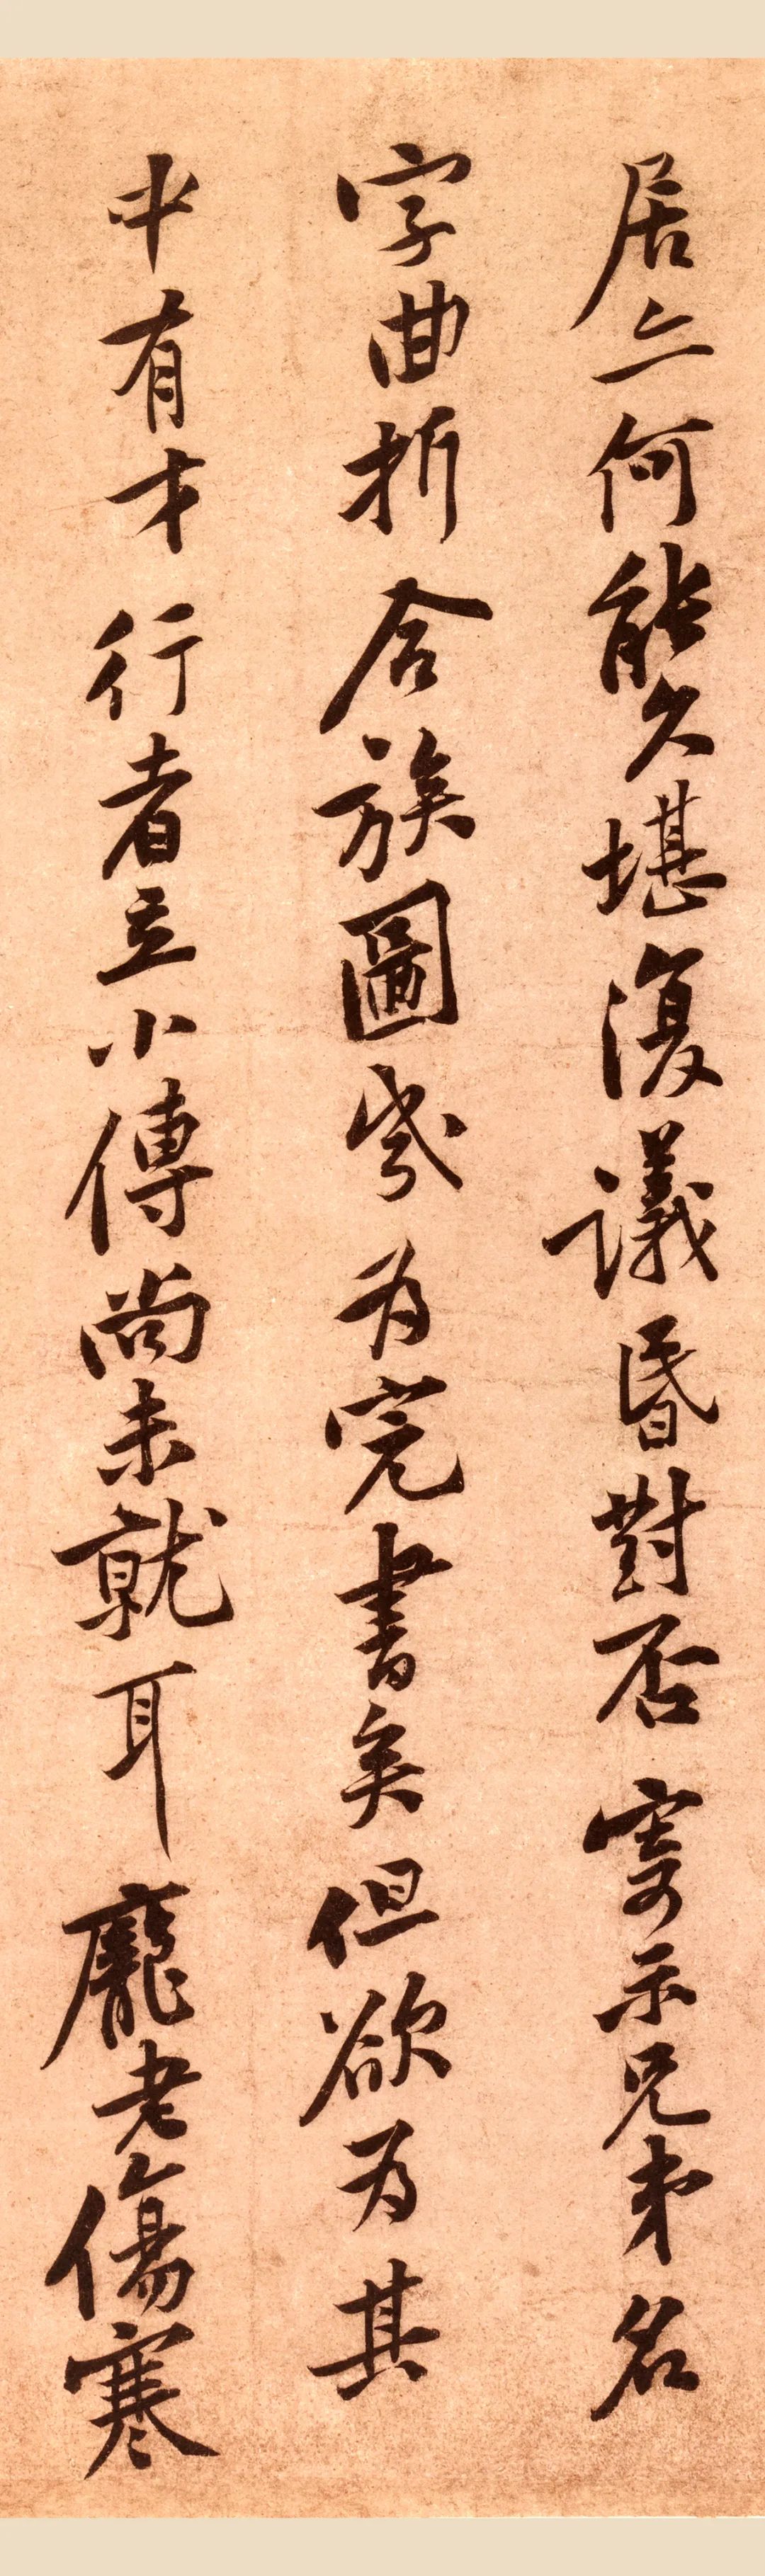 居亦何能久堪復議昏對否寄示兄弟名
字曲折合族圖幾為完書矣但欲為其
中有才行者立小傳尚未就耳龐老傷寒